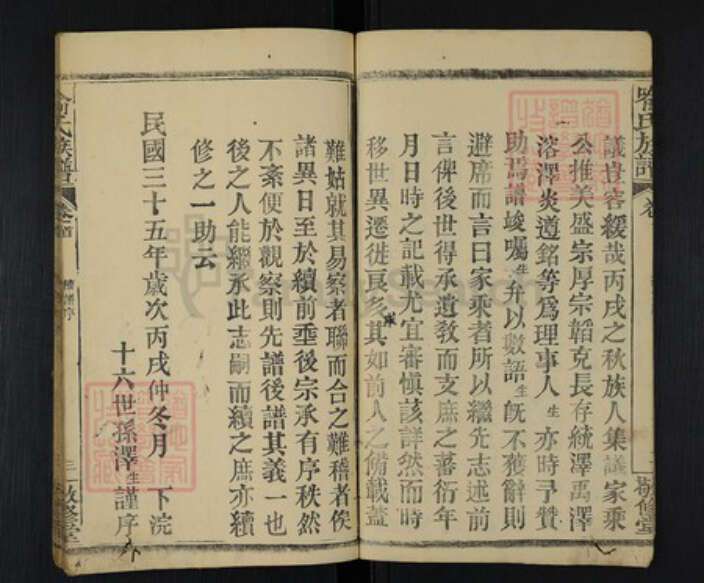 喻氏族譜
卷
敬修堂
議貴容緩哉丙戌之秋族人集議家乘
公推美盛宗厚宗韜克長存統澤禹澤
溶澤炎遵銘等為理事人生亦時予贊
助焉譜竣囑生弁以數語生既不獲辭則
避席而言曰家乘者所以繼先志述前
言俾後世得承遺教而支庶之蕃衍年
月日時之記載尤宜審愼該詳然而時
移世異遷徙良多其如前人之備載蓋
難姑就其易察者聯而合之難稽者俟
諸異日至於續前垂後宗承有序秩然
不紊便於觀察則先譜後譜其義一也
後之人能繼承此志嗣而續之庶亦續
修之一助云
民國三十五年歲次丙戌仲冬月 下浣
十六世孫澤生謹序
喻氏族譜
卷首
續譜序
三
敬修堂